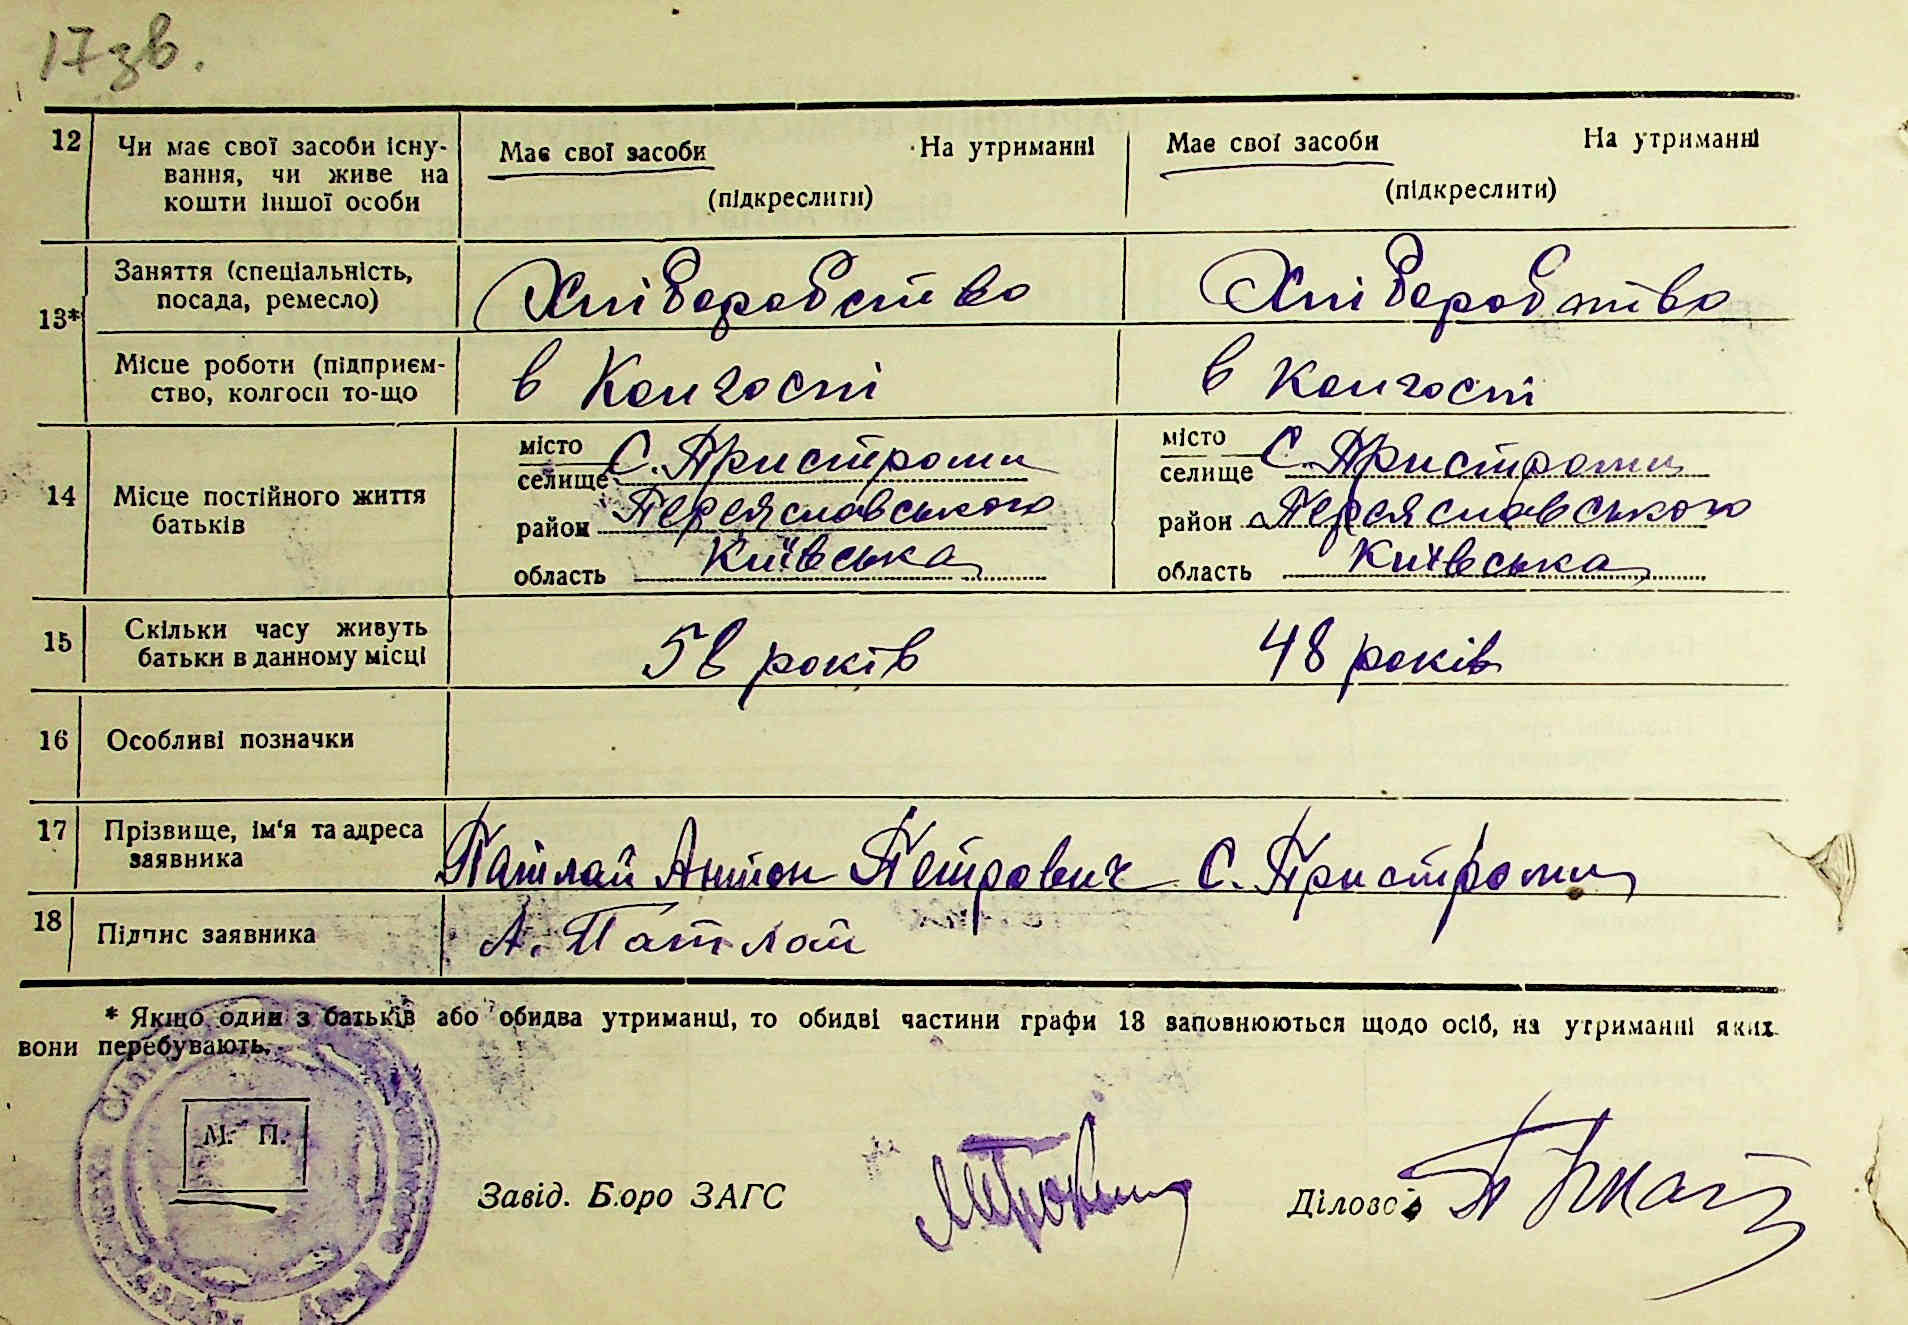 17 зв.
12 Чи має свої засоби існу- Має свої засоби На утриманні Має свої засоби На утриманні
вання, чи живе на (підкреслити) (підкреслити)
кошти іншої особи
13* Заняття (спеціальність, Хліборобство Хліборобство
посада, ремесло)
Місце роботи (підприєм- в Колгоспі в колгоспі
ство, колгосп то-що
14 Місце постійного життя батьків
місто
селище С. Пристроми
район Переяславського
область Київська
місто
селище С. Пристроми
район Переяславського
область Київська
15 Скільки часу живуть 58 років 48 років
батьки в данному місці
16 Особливі позначки
17 Прізвище, ім'я та адреса Патлай Антон Петрович С. Пристроми
заявника
18 Підпис заявника А. Патлай
* Якщо один з батьків або обидва утриманці, то обидві частини графи 13 заповнюються щодо осіб, на утриманні яких
вони перебувають.
М. П.
Завід. Бюро ЗАГС Діловод